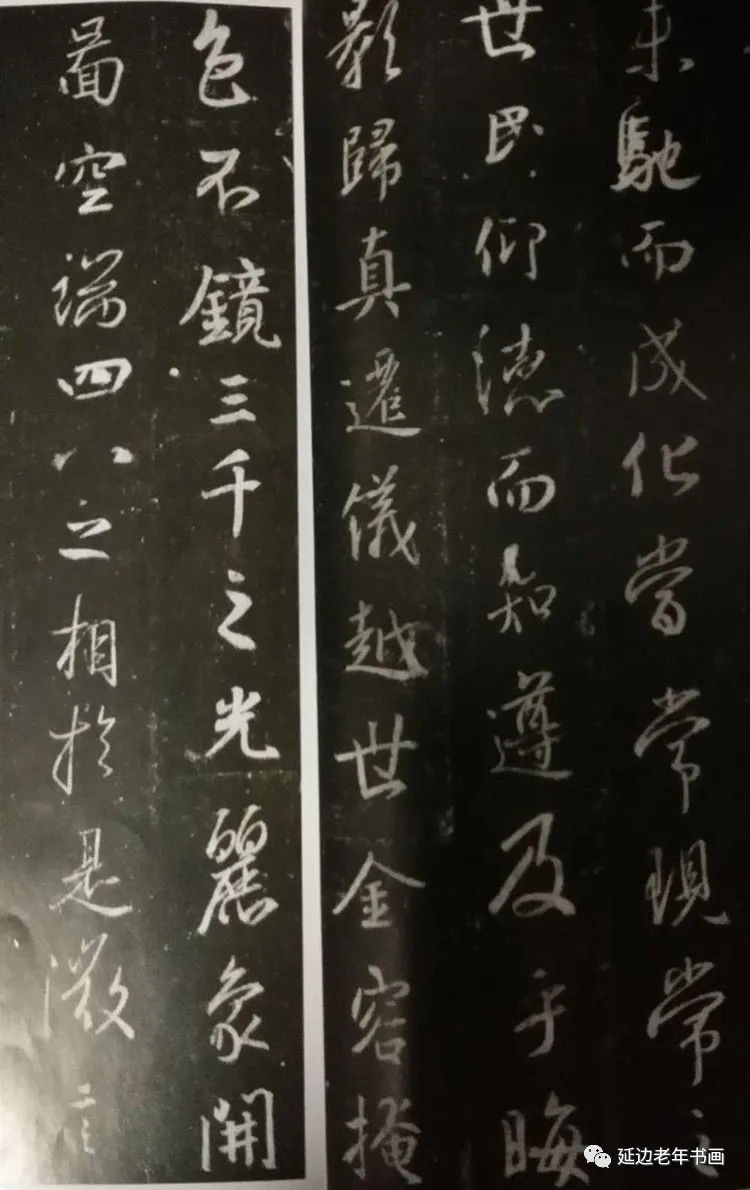 未馳而成化當常現常之
世民仰德而知遵及乎晦
影歸真遷儀越世金容掩
色不鏡三千之光麗象開
啚空端四八之相於是微言
延边老年书画